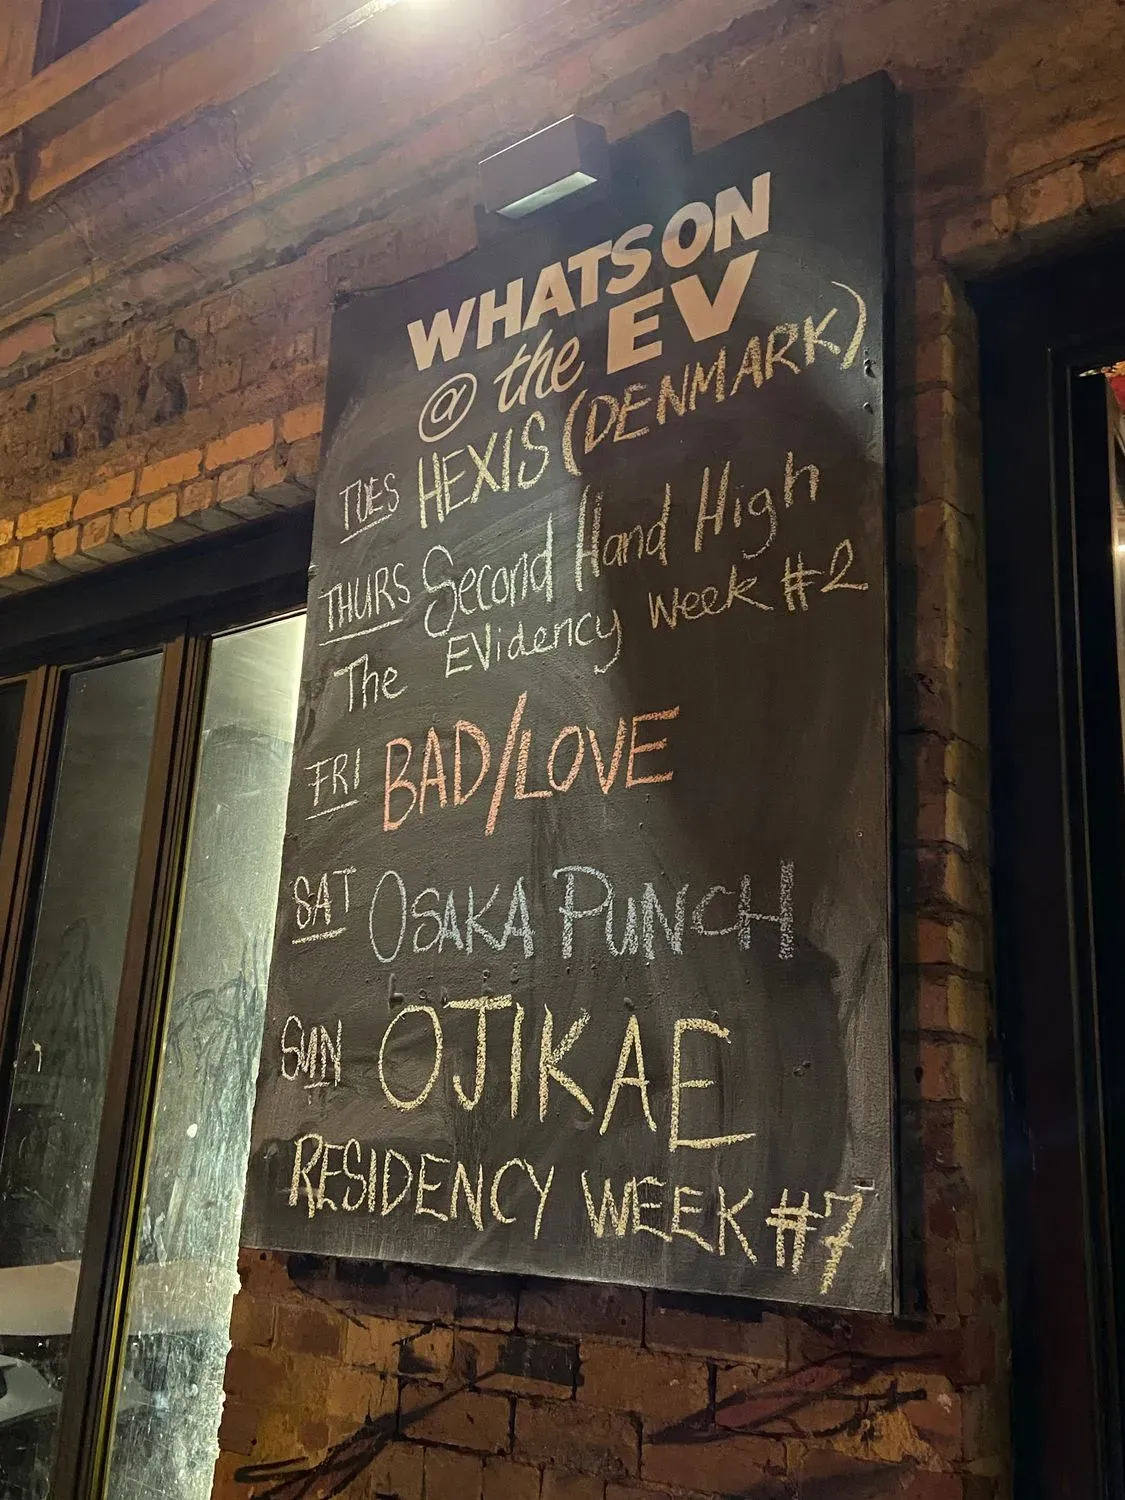 WHATS ON
@ the EV
TUES HEXIS (DENMARK)
THURS Second Hand High
The EVidency Week #2
FRI BAD/LOVE
SAT OSAKA PUNCH
SUN OJIKAE
RESIDENCY WEEK #7